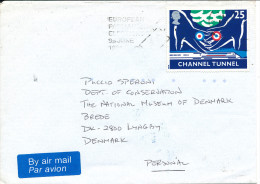 EUROPEAN
25
CHANNEL TUNNEL
DEPT. OF CONSERVATION
THE NATIONAL MUSEUM OF DENMARK
BREDE
DK-2800 LYNGBY
DENMARK
PERSONAL
By air mail
Par avion